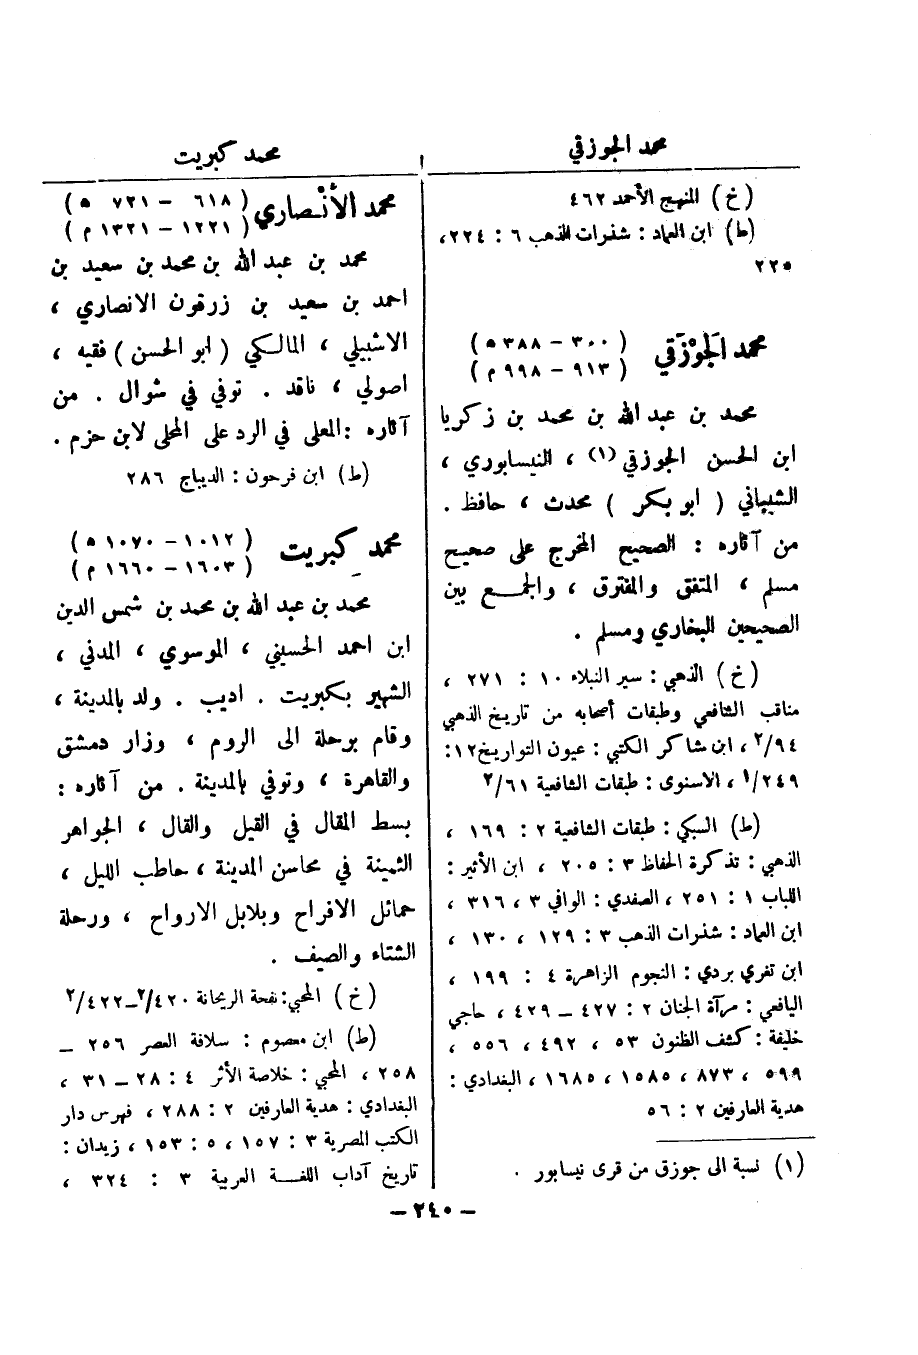 محمد الجوزقي
(خ) المنهج الأحمد ٤٦٢
(ط) ابن العماد : شذرات الذهب ٦ : ٢٢٤،
٢٢٥
محمد الجَوْزَقي ( ٣٠٠ - ٣٨٨ ه )
( ٩١٣ - ٩٩٨ م )
محمد بن عبد الله بن محمد بن زكريا
ابن الحسن الجوزقي (١) ، النيسابوري ،
الشيباني ( ابو بكر ) محدث ، حافظ .
من آثاره : الصحيح المخرج على صحيح
مسلم ، المتفق والمفترق ، والجمع بين
الصحيحين البخاري ومسلم .
(خ) الذهبي : سير النبلاء ١٠ : ٢٧١ ،
مناقب الشافعي وطبقات أصحابه من تاريخ الذهبي
٢/٩٤ ، ابن شاكر الكتبي : عيون التواريخ ١٢:
١/٢٤٩ ، الاسنوى : طبقات الشافعية ٢/٦١
(ط) السبكي : طبقات الشافعية ٢ : ١٦٩ ،
الذهبي : تذكرة الحفاظ ٣ : ٢٠٥ ، ابن الأثير :
اللباب ١ : ٢٥١ ، الصفدي : الوافي ٣ ، ٣١٦ ،
ابن العماد : شذرات الذهب ٣ : ١٢٩ ، ١٣٠ ،
ابن تغري بردي : النجوم الزاهرة ٤ : ١٩٩ ،
اليافعي : مرآة الجنان ٢ : ٤٢٧ - ٤٢٩ ، حاجي
خليفة : كشف الظنون ٥٣ ، ٤٩٢ ، ٥٥٦ ،
٥٩٩ ، ٨٧٣ ، ١٥٨٥ ، ١٦٨٥ ، البغدادي :
هدية العارفين ٢ : ٥٦
(١) نسبة الى جوزق من قرى نيسابور .
محمد كبريت
محمد الأنْصاري ( ٦١٨ - ٧٢١ ه )
( ١٢٢١ - ١٣٢١ م )
محمد بن عبد الله بن محمد بن سعيد بن
احمد بن سعيد بن زرقون الانصاري ،
الاشبيلي ، المالكي ( ابو الحسن ) فقيه ،
اصولي ، ناقد . توفي في شوال . من
آثاره : المعلى في الرد على المحلى لابن حزم .
(ط) ابن فرحون : الديباج ٢٨٦
محمد كِبريت ( ١٠١٢ - ١٠٧٠ ه )
( ١٦٠٣ - ١٦٦٠ م )
محمد بن عبد الله بن محمد بن شمس الدين
ابن احمد الحسيني ، الموسوي ، المدني ،
الشهير بكبريت . اديب . ولد بالمدينة ،
وقام برحلة الى الروم ، وزار دمشق
والقاهرة ، وتوفي بالمدينة . من آثاره :
بسط المقال في القيل والقال ، الجواهر
الثمينة في محاسن المدينة ، حاطب الليل ،
حمائل الافراح وبلابل الارواح ، ورحلة
الشتاء والصيف .
(خ) المحبي : نفحة الريحانة ٢/٤٢٠-٢/٤٢٢
(ط) ابن معصوم : سلافة العصر ٢٥٦ -
٢٥٨ ، المحبي : خلاصة الأثر ٤ : ٢٨ - ٣١ ،
البغدادي : هدية العارفين ٢ : ٢٨٨ ، فهرس دار
الكتب المصرية ٣ : ١٥٧ ، ٥ : ١٥٣ ، زيدان :
تاريخ آداب اللغة العربية ٣ : ٣٢٤ ،
- ٢٤٠ -